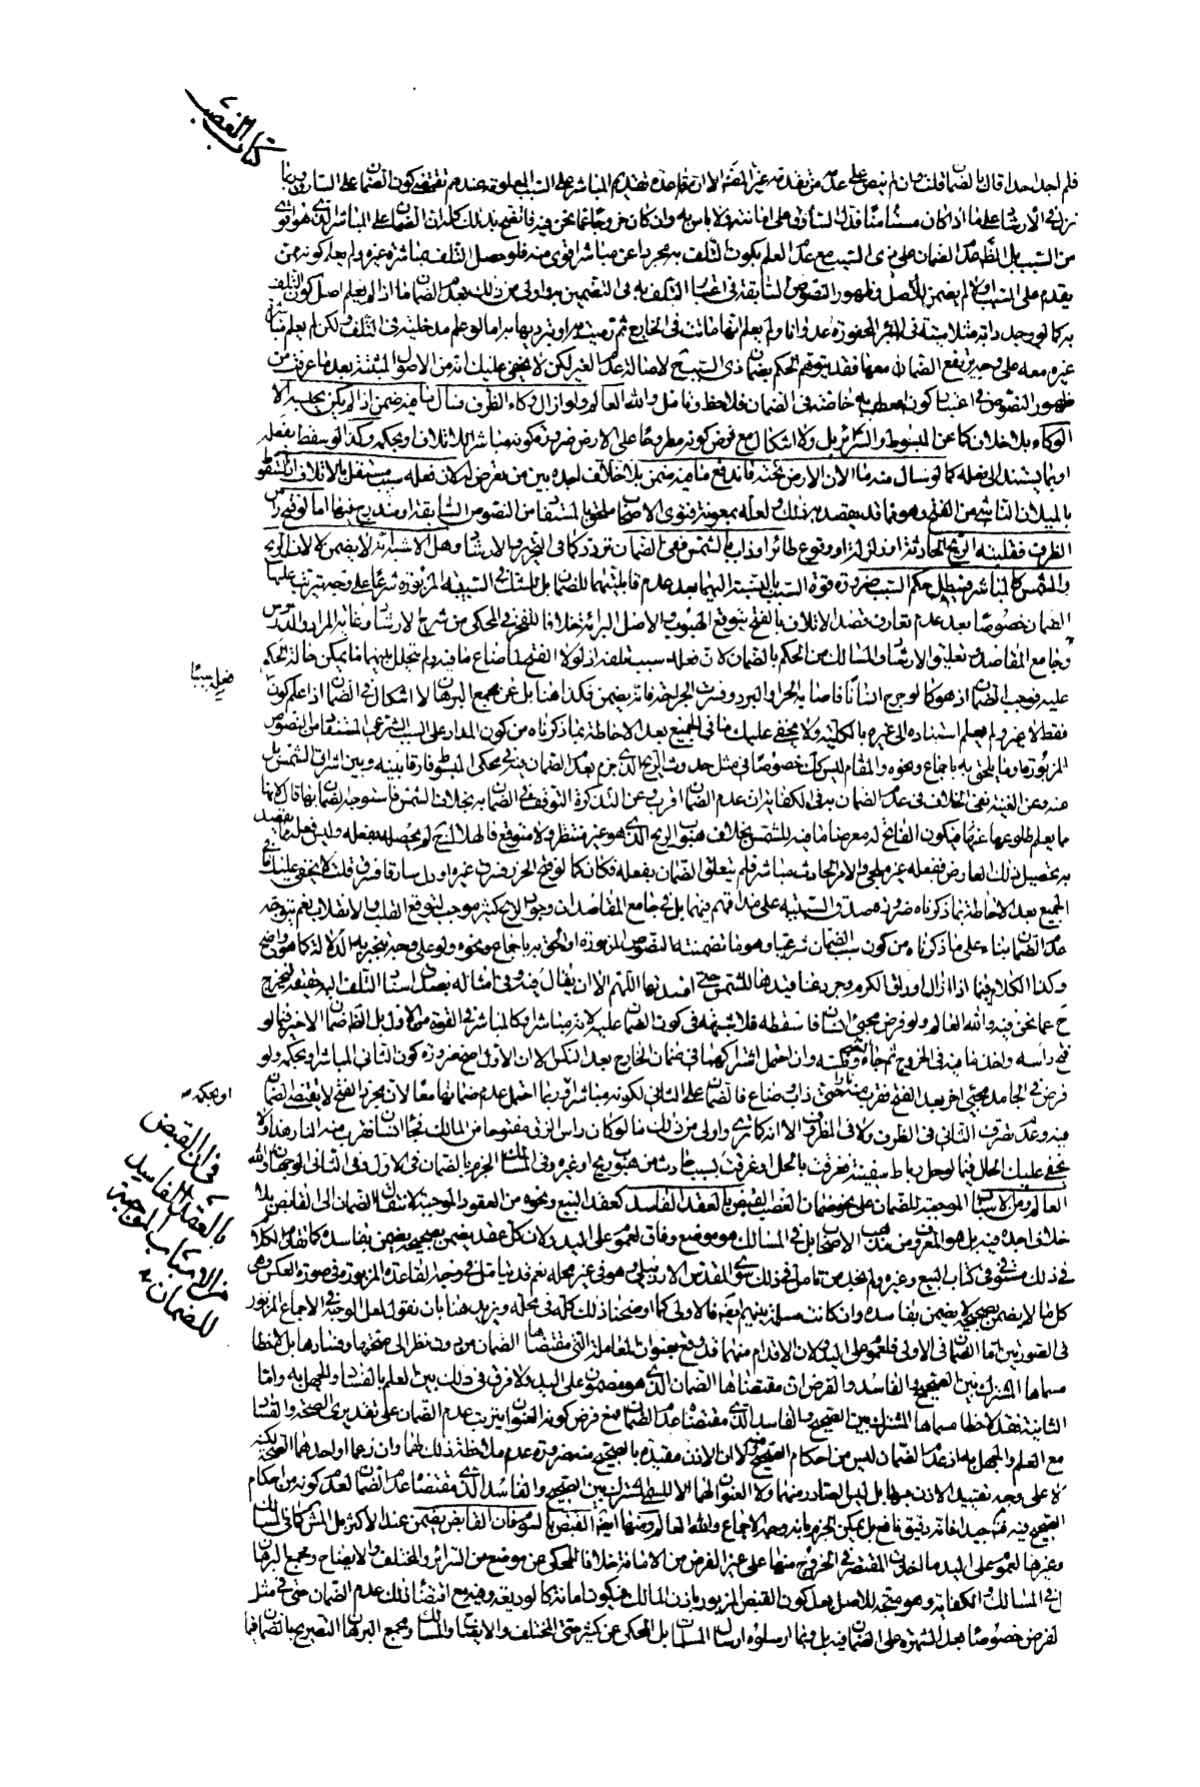 كتاب الغصب
فلم اجد احدا قال بالضمان قلت وان لم ينص على عدمه من تقدمه غير المصنف الا ان قاعدة تقديم المباشر على السبب المعلومة عندهم تقتضي كون الضمان على السارق
من السبب بل الظاهر عدم الضمان على ذي السبب مع عدم العلم بكون التلف به مجردا عن مباشر اقوى منه فلو حصل التلف بمباشرة غيره ولم يعلم كونه ممن
به كما لو وجد دابة مثلا ميتة في البئر المحفورة عدوانا ولم يعلم انها ماتت في الخارج ثم رميت
غيره معه على وجه يرتفع الضمان معها فقد يتوهم الحكم بضمان ذي السبب ح لاصالة عدم الغير لكن لا يخفى عليك انه من الاصول المثبتة بعد ما عرفت من
ظهور النصوص في اعتبار كون العطب به خاصة في الضمان فلاحظ وتامل والله العالم ولو ازال وكاء الظرف فسال ما فيه ضمن اذا لم يكن يحبسه الا
الوكاء بلا خلاف كما عن المبسوط والسرائر بل ولا اشكال مع فرض كونه مطروحا على الارض ضرورة كونه مباشرا للاتلاف او بحكمه وكذا لو سقط بفعله
او بما يستند الى فعله كما لو سال منه ما الان الارض تحته فاندفع ما فيه ضمن بلا خلاف اجده بين من تعرض له لان فعله سبب مستقل بالاتلاف
بالميلان الناشي من الفتح وهو مما قد يقصد به ذلك ولعله بمعونة فتوى الاصحاب ملحق بالمستفاد من النصوص السابقة او مندرج فيها اما لو فتح راس
الظرف فقلبته الريح الحادثة او زلزلة او وقوع طائر او ذاب بالشمس ففي الضمان تردد كما في التحرير والارشاد وهل الاشبه انه لا يضمن لان الريح
والشمس كالمباشر فيبطل حكم السبب ضرورة قوة السبب بالنسبة اليهما بعد عدم قابليتهما للضمان
الضمان خصوصا بعد عدم تعارف قصد الاتلاف بالفتح بتوقع الهبوب والاصل البرائة خلافا للفخر في المحكي من شرح الارشاد وغاية المراد والدروس
وجامع المقاصد وتعليق الارشاد والمسالك من الحكم بالضمان لان فعله سبب تلفه اذ لولا الفتح لما ضاع ما فيه ولم يتخلل بينهما ما يمكن حالة الحكم
عليه فوجب الضمان اذ هو كما لو جرح انسانا فاصابه الحر او البرد وسرت الجراحة فانه يضمن فكذا هنا بل عن مجمع البرهان لا اشكال في الضمان اذا علم كون
فعله سببا
فقط لا غير ولم يعلم استناده الى غيره بالكلية ولا يخفى عليك ما في الجميع بعد الاحاطة بما ذكرناه من كون المدار على السبب الشرعي المستفاد من النصوص
المزبورة وما يلحق به باجماع ونحوه والمقام ليس كك خصوصا في مثل حدوث الريح الذي جزم بعدم الضمان به في محكي المبسوط فارقا بينه وبين اشراق الشمس بل
عنه وعن الغنية نفي الخلاف في عدم الضمان به في الكفاية ان عدم الضمان اقرب وعن التذكرة التوقف في الضمان به بخلاف الشمس فاستوجه الضمان بها قال لانها
مما يعلم طلوعها غيرها فيكون الفاتح له معرضا ما فيه للشمس بخلاف هبوب الريح الذي هو غير منتظر ولا متوقع فالهلاك ح لم يحصل بفعله وليس فعله مما يقصد
به تحصيل ذلك العارض ففعله غير ملجئ والامر الحادث مباشر فلم يتعلق الضمان بفعله فكان كما لو فتح الحرز فسرق غيره او دل سارقا فسرق قلت لا يخفى عليك ما في
الجميع بعد الاحاطة بما ذكرناه ضرورة صدق التسبيب على مذاقهم فيهما بل في جامع المقاصد ان وجود الريح كثير موجب لتوقع القلب والانقلاب نعم يتوجه
عدم الضمان بناء على ما ذكرناه من كون سبب الضمان شرعيا وهو ما تضمنته النصوص المزبورة او الحق به باجماع ونحوه ولو على وجه ينجبر به الدلالة كما هو واضح
وكذا الكلام فيما اذا ازال اوراق الكرم وجرد عناقيدها للشمس حتى افسدتها اللهم الا ان يقال فيه وفي امثاله بصدق اسناد التلف اليه حقيقة فيخرج
ح عما نحن فيه والله العالم ولو فرض مجيئ انسان فاسقطه فلا شبهة في كون الضمان عليه لانه مباشر او كالمباشر في القوة من الاول بل الظاهر ضمان الاخير فيما لو
فتح راسه واخذ ما فيه في الخروج ثم جاء اخر فنكسه وان احتمل اشتراكهما في ضمان الخارج بعد النكس الا ان الاول اصح ضرورة كون الثاني المباشر او بحكمه ولو
او بحكمه
فرض في الجامد مجيئ اخر بعد الفتح فقرب منه نارا حتى ذاب وضاع فالضمان على الثاني لكونه مباشرا وربما احتمل عدم ضمانهما معا لان مجرد الفتح لا يقتضي الضمان
فيه وعدم تصرف الثاني في الظرف ولا في المظروف الا انه كما ترى واولى من ذلك ما لو كان راس الزق مفتوحا من المالك فجاء انسان فقرب منه النار هذا ولا
يخفى عليك الحال فيما لو حل رباط سفينة فغرقت بالحل او غرقت بسبب حادث من هبوب ريح او غيره وفي المسالك الجزم بالضمان في الاول وفي الثاني الوجهان والله
في ان القبض بالعقد الفاسد من الاسباب الموجبة للضمان
العالم ومن الاسباب الموجبة للضمان على نحو ضمان الغصب القبض بالعقد الفاسد كعقد البيع ونحوه من العقود الموجبة لانتقال الضمان الى القابض بلا
خلاف اجده فيه بل هو المعروف من مذهب الاصحاب بل في المسالك هو موضع وفاق لعموم على اليد ولان كل عقد يضمن بصحيحه يضمن بفاسده كما تقدم الكلام
في ذلك مستوفى في كتاب البيع وغيره ولم نجد من تامل في ذلك سوى المقدس الاردبيلي وهو في غير محله نعم قد يتامل في وجه القاعدة المزبورة في صورة العكس وهي
كل ما لا يضمن بصحيحه لا يضمن بفاسده وان كانت مسلمة بينهم ايضا كالاولى كما اوضحنا ذلك كله في محله ونزيد هنا بان نقول لعل الوجه في الاجماع المزبور
في الصورتين اما الضمان في الاولى فلعموم على اليد ولان الاقدام منهما قد وقع بعنوان المعاملة التي مقتضاها الضمان من دون نظر الى صحتها وفسادها بل لاحظا
مسماها المشترك بين الصحيح والفاسد والفرض ان مقتضاها الضمان الذي هو مضمون على اليد ولا فرق في ذلك بين العلم بالفساد والجهل به واما
الثانية فقد لاحظا مسماها المشترك بين الصحيح والفاسد الذي مقتضاه عدم الضمان فمع فرض كونه العنوان يترتب عدم الضمان على تقديري الصحة والفساد
مع العلم والجهل به اذ عدم الضمان ليس من احكام الصحيح منه لان الاذن مقيدة بالصحيح منه ضرورة عدم ملاحظة ذلك لهما وان زعما او احدهما الصحة لكنه
لا على وجه تقييد الاذن بها بل ليس الصادر منهما ولا العنوان لهما الا المسمى المشترك بين الصحيح والفاسد الذي مقتضاه عدم الضمان لعدم كونه من احكام
الصحيح فيه فتامل جيدا فانه دقيق نافع بل يمكن الجزم بانه وجه الاجماع والله العالم ومنها ايضا القبض بالسوم فان القابض يضمن عند الاكثر بل المشهور كما في المسالك
وغيرها لعموم على اليد ما اخذت المقتصر في الخروج منها على غير الفرض من الامانة خلافا للمحكي عن موضع من السرائر والمختلف والايضاح ومجمع البرهان
بل في المسالك والكفاية وهو متجه للاصل بعد كون القبض المزبور باذن المالك فيكون امانة كالوديعة وفيه منع اقتضاء ذلك عدم الضمان حتى في مثل
الفرض خصوصا بعد الشهرة على الضمان فيه بل وفيما ارسلوه ارسال المسلمات بل المحكي عن كثير حتى المختلف والايضاح والمسالك ومجمع البرهان التصريح بالضمان فيما